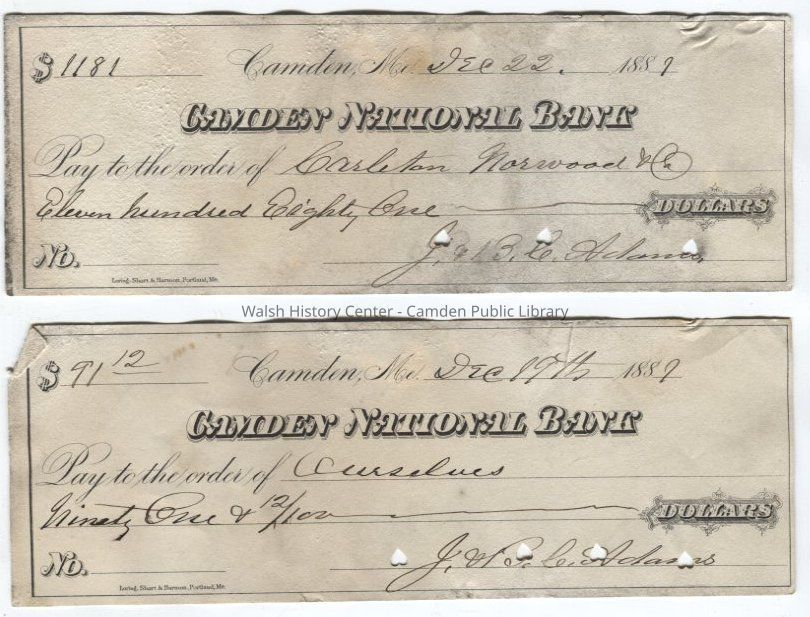 $ 1181 Camden, Me. Dec 22. 1889
CAMDEN NATIONAL BANK
Pay to the order of Carleton Norwood & Co
Eleven hundred Eighty One DOLLARS
No. J. & B. C. Adams
Loring, Short & Harmon, Portland, Me.
Walsh History Center - Camden Public Library
$ 91 12 Camden, Me. Dec 19th 1889
CAMDEN NATIONAL BANK
Pay to the order of Ourselves
Ninety One & 12/100 DOLLARS
No. J. & B. C. Adams
Loring, Short & Harmon, Portland, Me.